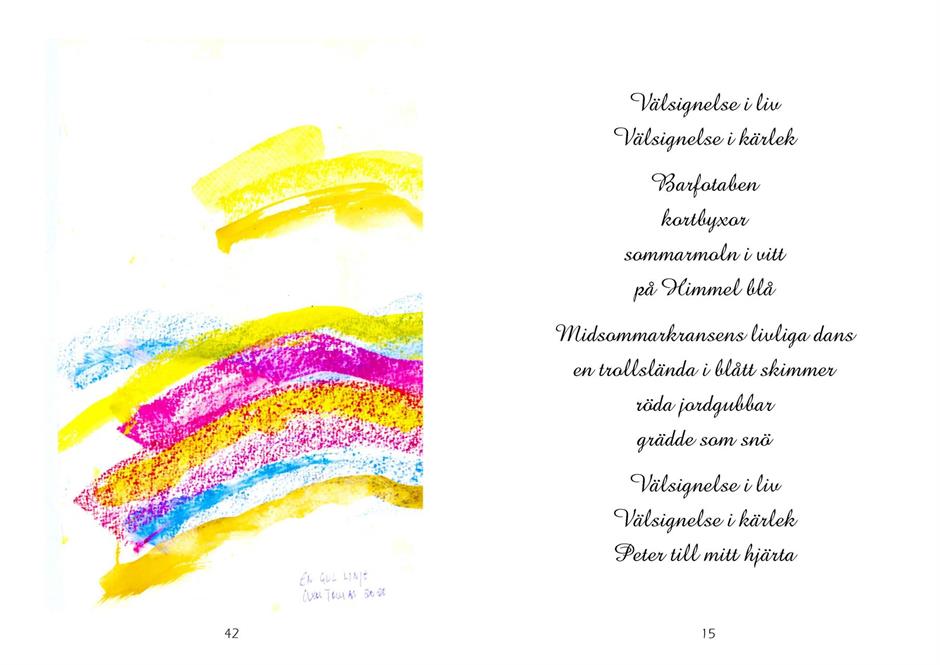 EN GUL LINJE
42
Välsignelse i liv
Välsignelse i kärlek
Barfotaben
kortbyxor
sommarmoln i vitt
på Himmel blå
Midsommarkransens livliga dans
en trollslända i blått skimmer
röda jordgubbar
grädde som snö
Välsignelse i liv
Välsignelse i kärlek
Peter till mitt hjärta
15